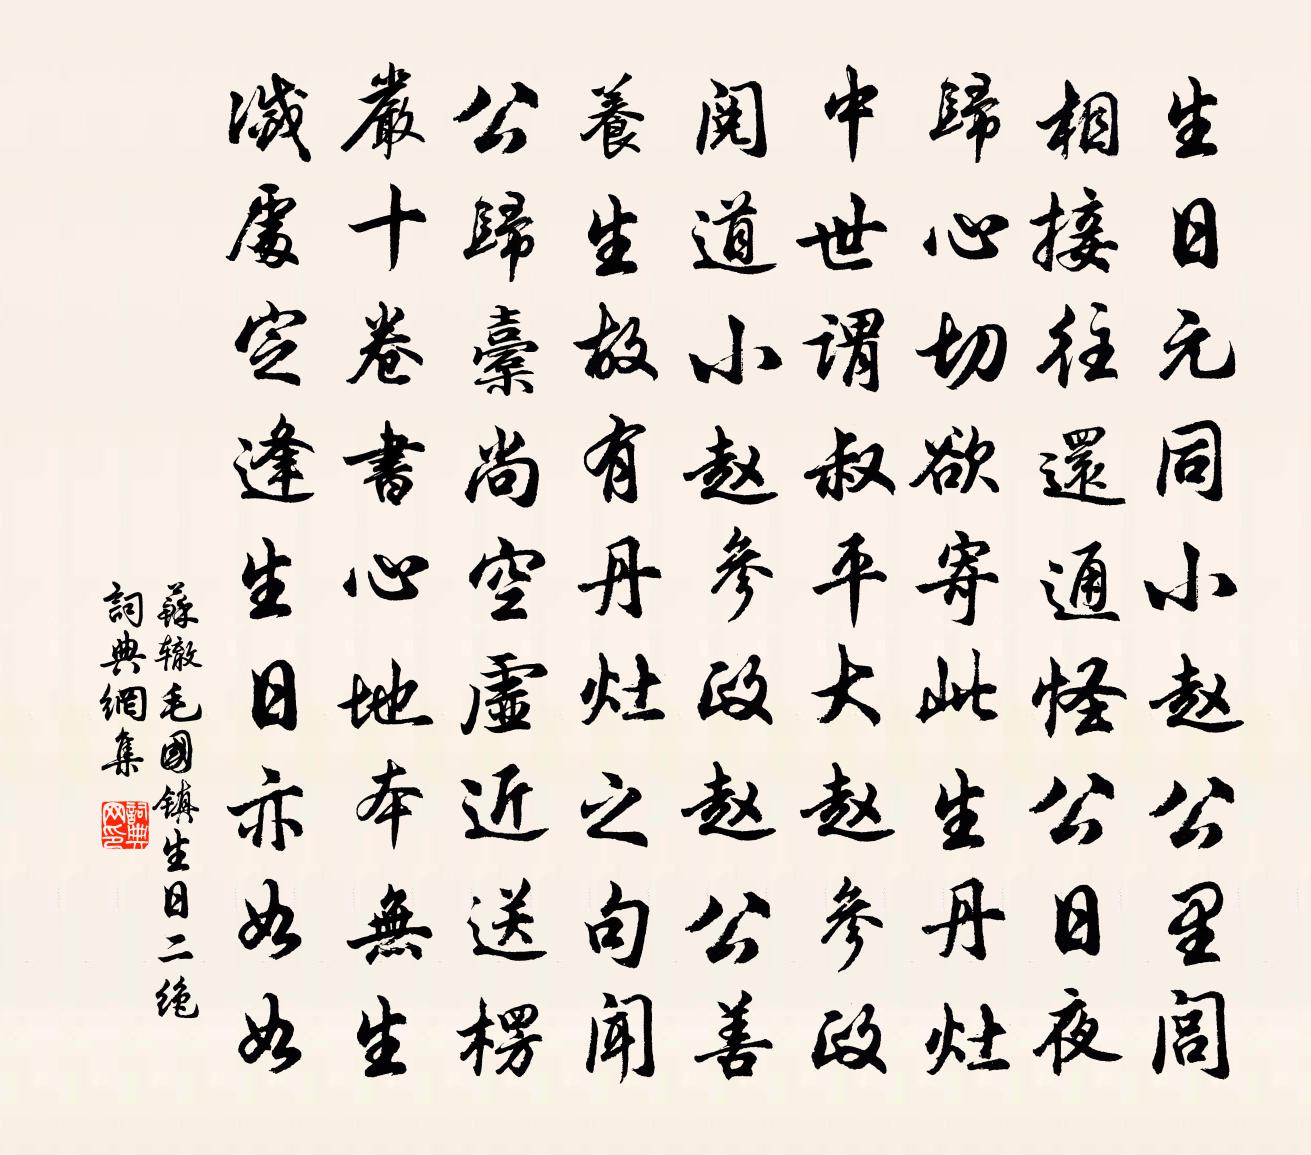 生日元同小赵公里閭
相接往還通怪公日夜
歸心切欲寄此生丹灶
中世謂叔平大赵參政
閱道小赵參政赵公善
養生故有丹灶之句聞
公歸橐尚空虛近送楞
嚴十卷書心地本無生
滅處定逢生日亦如如
蘇辙毛國镇生日二绝
詞典網集
詞典
网印